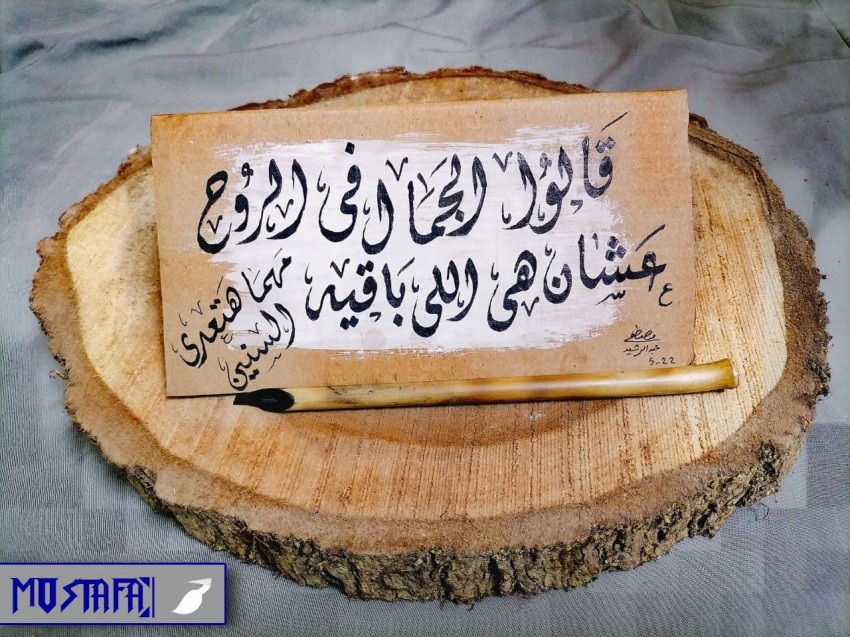 قَالُوا الجَمَال في الرُوح
عَشان هي اللي بَاقيه
مهما هتعدي
السنين
مصطفى
عبدالرشيد
5-22
MOSTAFA